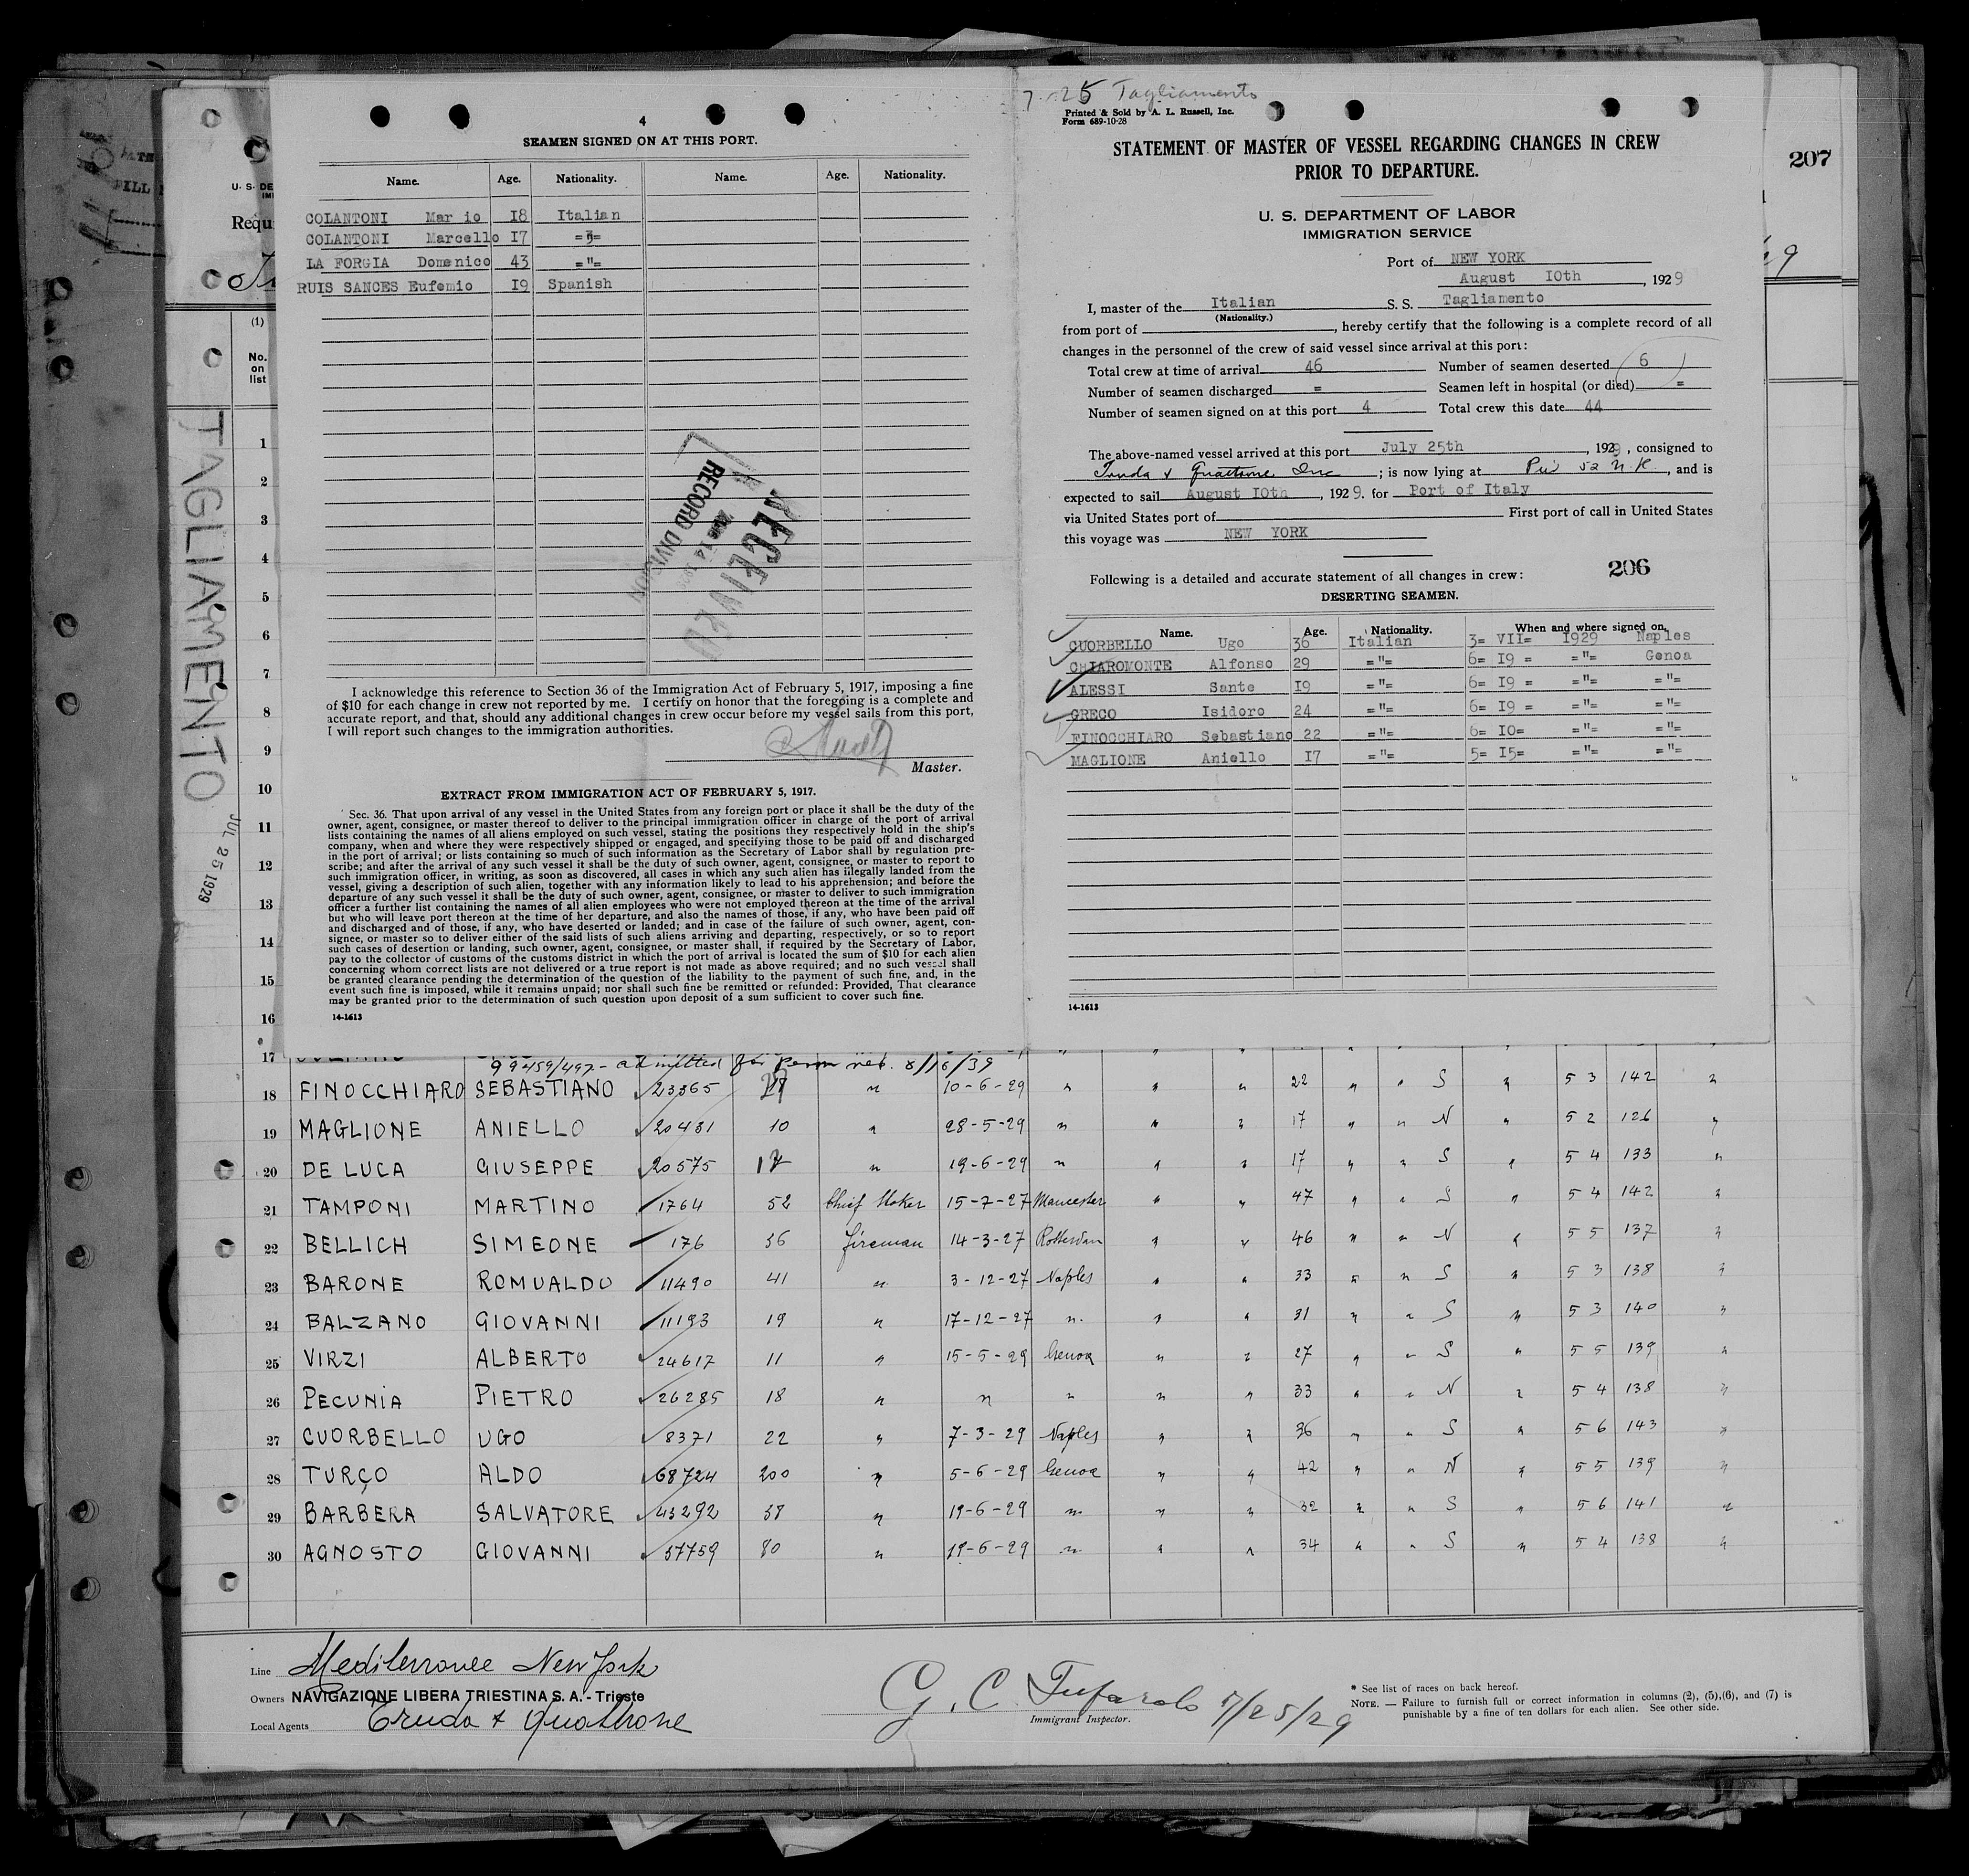 207
U. S. DE
Requ
(1)
No.
on
list
TAGLIAMENTO
JUL 25 1929
4
SEAMEN SIGNED ON AT THIS PORT.
Name. Age. Nationality. Name. Age. Nationality.
COLANTONI Mar io 18 Italian
COLANTONI Marcello 17 ="=
LA FORGIA Domenico 43 ="=
RUIS SANCES Eufemio 19 Spanish
RECEIVED
AUG 14
RECORD DIVISION
I acknowledge this reference to Section 36 of the Immigration Act of February 5, 1917, imposing a fine
of $10 for each change in crew not reported by me. I certify on honor that the foregoing is a complete and
accurate report, and that, should any additional changes in crew occur before my vessel sails from this port,
I will report such changes to the immigration authorities.
Master.
EXTRACT FROM IMMIGRATION ACT OF FEBRUARY 5, 1917.
Sec. 36. That upon arrival of any vessel in the United States from any foreign port or place it shall be the duty of the
owner, agent, consignee, or master thereof to deliver to the principal immigration officer in charge of the port of arrival
lists containing the names of all aliens employed on such vessel, stating the positions they respectively hold in the ship's
company, when and where they were respectively shipped or engaged, and specifying those to be paid off and discharged
in the port of arrival; or lists containing so much of such information as the Secretary of Labor shall by regulation pre-
scribe; and after the arrival of any such vessel it shall be the duty of such owner, agent, consignee, or master to report to
such immigration officer, in writing, as soon as discovered, all cases in which any such alien has illegally landed from the
vessel, giving a description of such alien, together with any information likely to lead to his apprehension; and before the
departure of any such vessel it shall be the duty of such owner, agent, consignee, or master to deliver to such immigration
officer a further list containing the names of all alien employees who were not employed thereon at the time of the arrival
but who will leave port thereon at the time of her departure, and also the names of those, if any, who have been paid off
and discharged and of those, if any, who have deserted or landed; and in case of the failure of such owner, agent, con-
signee, or master so to deliver either of the said lists of such aliens arriving and departing, respectively, or so to report
such cases of desertion or landing, such owner, agent, consignee, or master shall, if required by the Secretary of Labor,
pay to the collector of customs of the customs district in which the port of arrival is located the sum of $10 for each alien
concerning whom correct lists are not delivered or a true report is not made as above required; and no such vessel shall
be granted clearance pending the determination of the question of the liability to the payment of such fine, and, in the
event such fine is imposed, while it remains unpaid; nor shall such fine be remitted or refunded: Provided, That clearance
may be granted prior to the determination of such question upon deposit of a sum sufficient to cover such fine.
14-1613
7-25 Tagliamento
Printed & Sold by A. L. Russell, Inc.
Form 689-10-28
STATEMENT OF MASTER OF VESSEL REGARDING CHANGES IN CREW
PRIOR TO DEPARTURE.
U. S. DEPARTMENT OF LABOR
IMMIGRATION SERVICE
Port of NEW YORK
August 10th, 1929
I, master of the Italian S. S. Tagliamento
(Nationality.)
from port of , hereby certify that the following is a complete record of all
changes in the personnel of the crew of said vessel since arrival at this port:
Total crew at time of arrival 46 Number of seamen deserted 6
Number of seamen discharged = Seamen left in hospital (or died) =
Number of seamen signed on at this port 4 Total crew this date 44
The above-named vessel arrived at this port July 25th, 1929, consigned to
Truda & Quattrone Inc; is now lying at Pier 52 N.R., and is
expected to sail August 10th, 1929. for Port of Italy
via United States port of First port of call in United States
this voyage was NEW YORK
206
Following is a detailed and accurate statement of all changes in crew:
DESERTING SEAMEN.
Name. Age. Nationality. When and where signed on.
CUORBELLO Ugo 36 Italian 3= VII= 1929 Naples
CHIAROMONTE Alfonso 29 ="= 6= 19 = ="= Genoa
ALESSI Sante 19 ="= 6= 19 = ="= ="=
GRECO Isidoro 24 ="= 6= 19 = ="= ="=
FINOCCHIARO Sebastiano 22 ="= 6= 10= ="= ="=
MAGLIONE Aniello 17 ="= 5= 15= ="= ="=
14-1613
1
2
3
4
5
6
7
8
9
10
11
12
13
14
15
16
17
99459/497 - admitted for perm res. 8/16/39
18 FINOCCHIARO SEBASTIANO 23365 " 10-6-29 " " " 22 " " S " 5 3 142 "
19 MAGLIONE ANIELLO 20431 10 " 28-5-29 " " " 17 " " N " 5 2 126 "
20 DE LUCA GIUSEPPE 20575 17 " 19-6-29 " " " 17 " " S " 5 4 133 "
21 TAMPONI MARTINO 1764 52 Chief Stoker 15-7-27 Mancester " " 47 " " S " 5 4 142 "
22 BELLICH SIMEONE 176 36 fireman 14-3-27 Rotterdam " " 46 " " N " 5 5 137 "
23 BARONE ROMUALDO 11490 41 " 3-12-27 Naples " " 33 " " S " 5 3 138 "
24 BALZANO GIOVANNI 11193 19 " 17-12-27 " " " 31 " " S " 5 3 140 "
25 VIRZI ALBERTO 24617 11 " 15-5-29 Genoa " " 27 " " S " 5 5 139 "
26 PECUNIA PIETRO 26285 18 " " " " " 33 " " N " 5 4 138 "
27 CUORBELLO UGO 8371 22 " 7-3-29 Naples " " 36 " " S " 5 6 143 "
28 TURCO ALDO 68724 200 " 5-6-29 Genoa " " 42 " " N " 5 5 139 "
29 BARBERA SALVATORE 43292 38 " 19-6-29 " " " 32 " " S " 5 6 141 "
30 AGNOSTO GIOVANNI 57759 80 " 19-6-29 " " " 34 " " S " 5 4 138 "
Line Mediterranee New York
Owners NAVIGAZIONE LIBERA TRIESTINA S. A. - Trieste
Local Agents Truda & Quattrone
G. C. Tufarolo 7/25/29
Immigrant Inspector.
* See list of races on back hereof.
NOTE. — Failure to furnish full or correct information in columns (2), (5),(6), and (7) is
punishable by a fine of ten dollars for each alien. See other side.